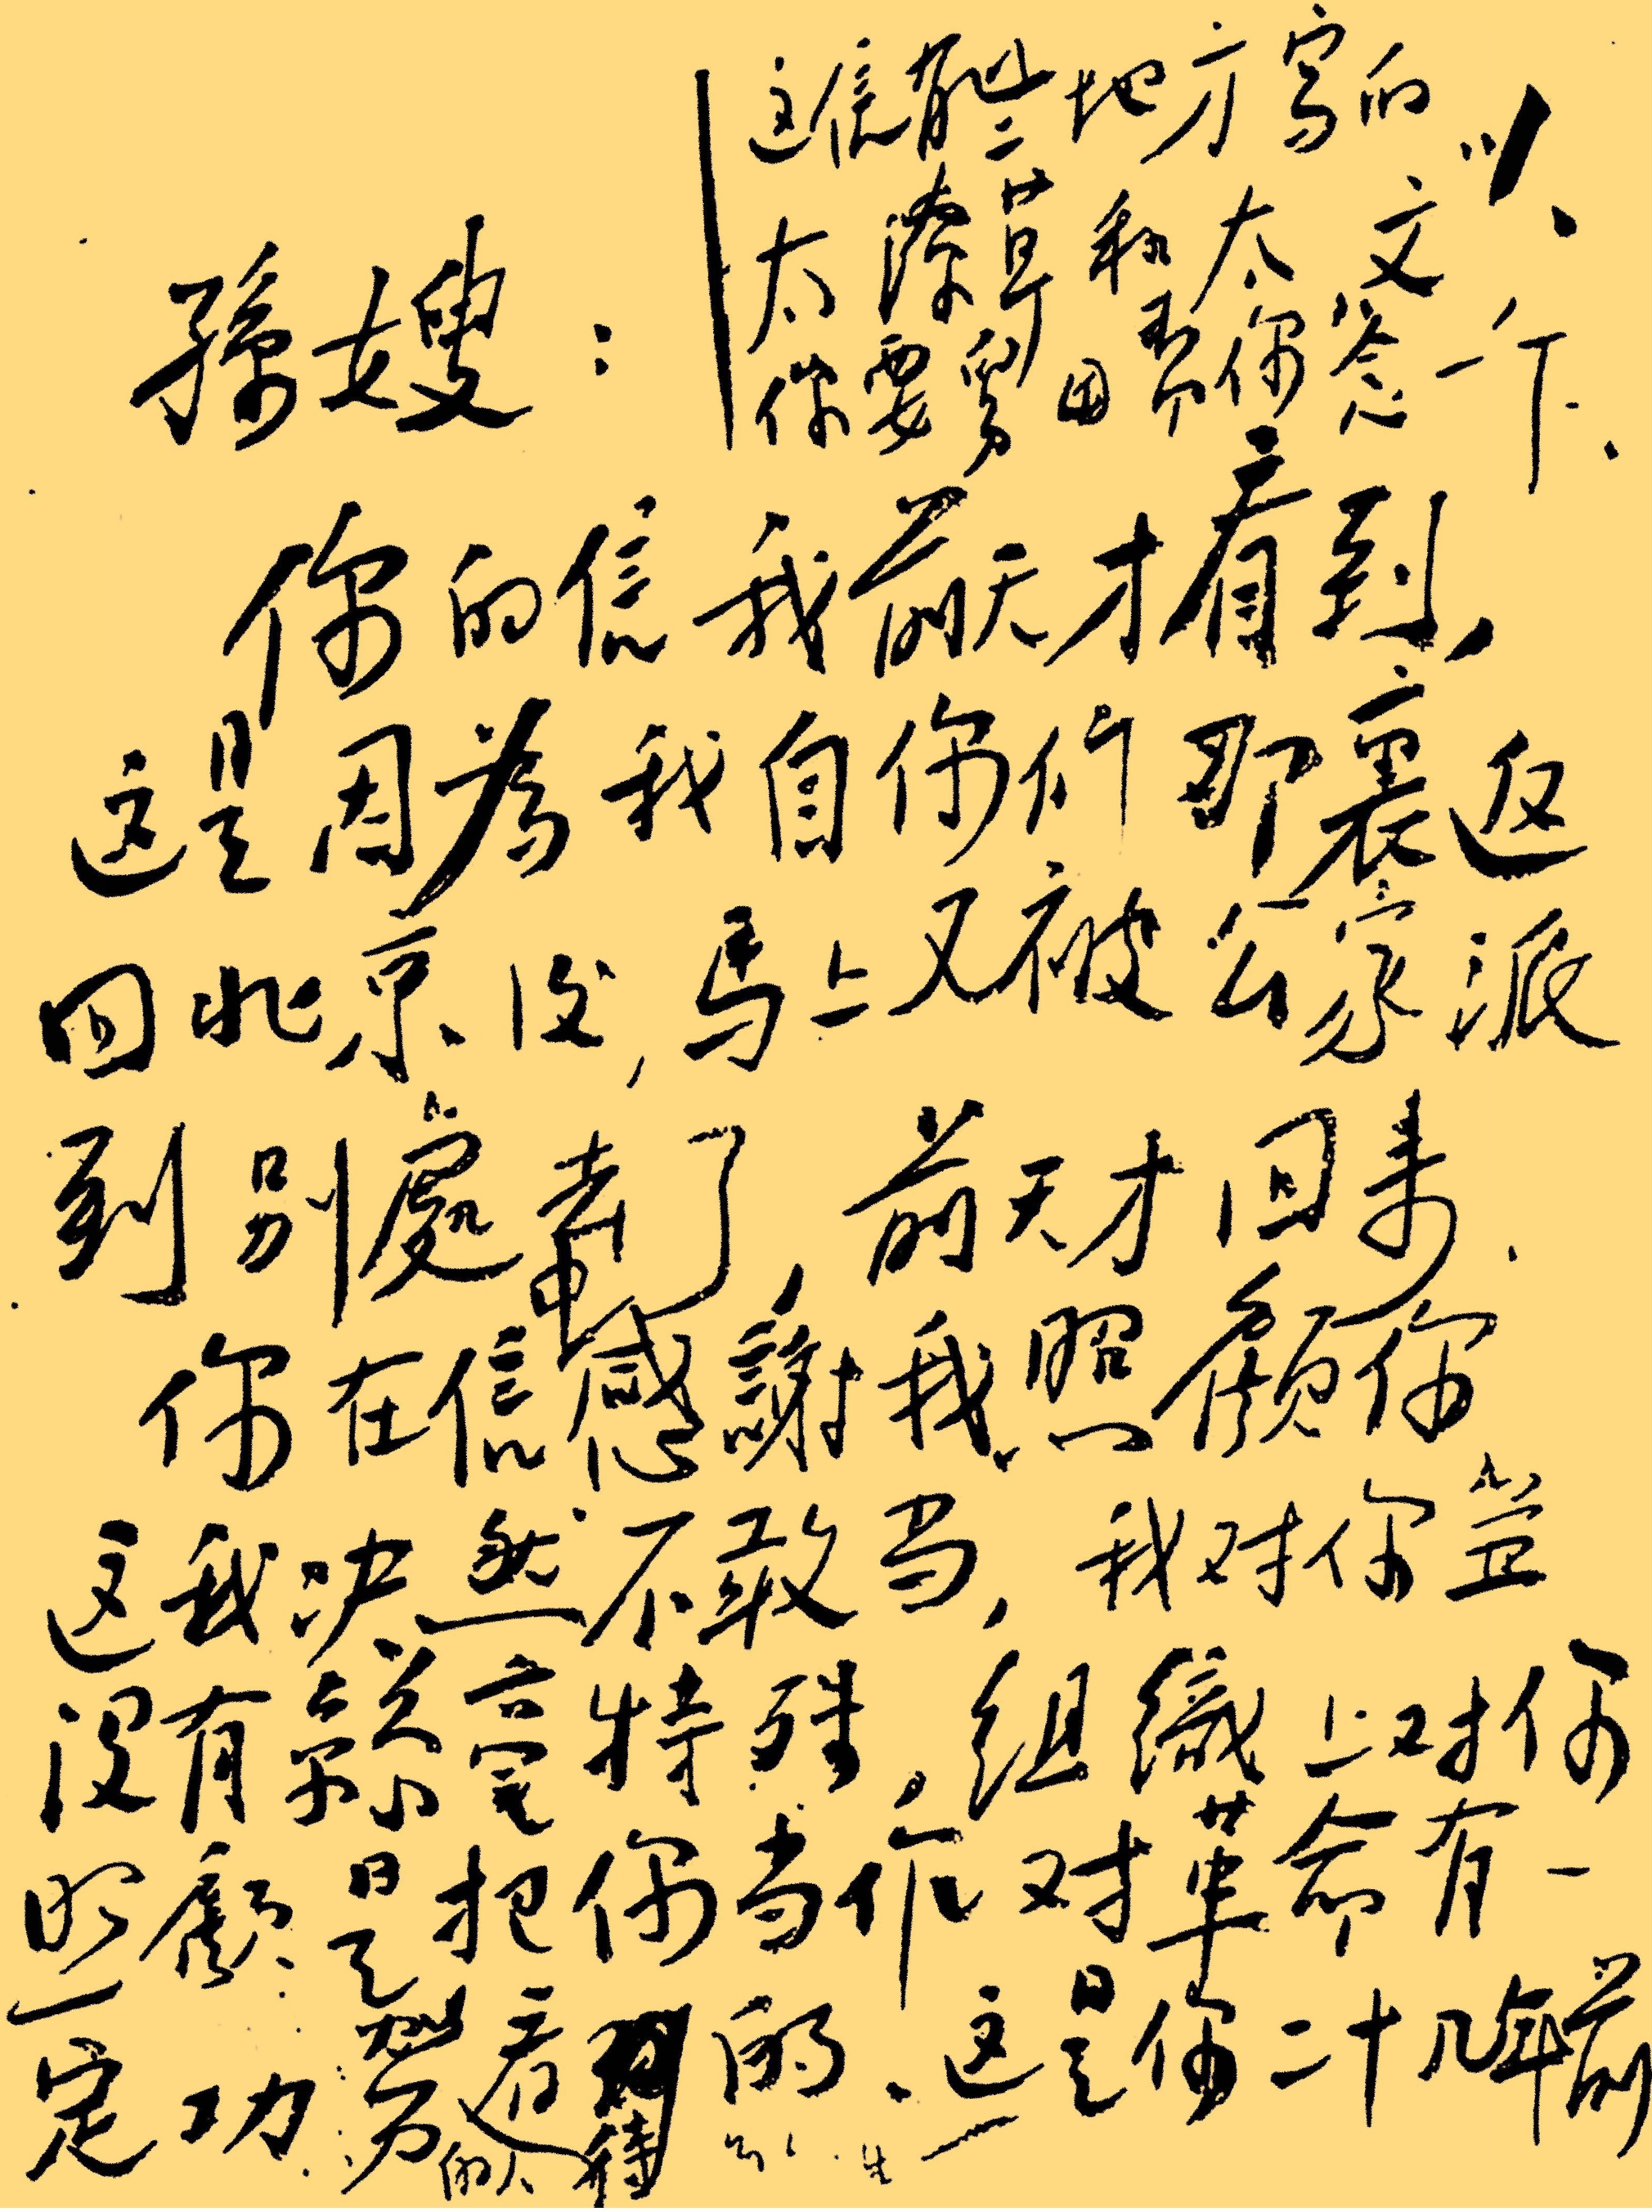 这信有些地方写的
太潦草和太文
你要旧习你念一下
孫嫂：
你的信我前天才看到，
这是因為我自你们那裏返
回北京後，馬上又被公家派
到别處去了，前天才回来．
你在信中感謝我照顧你
这我决然不敢当，我对你並
没有絲毫特殊，組織上对你
照顧是把你当作对革命有一
定功劳的人看待的．这是你二十几年前